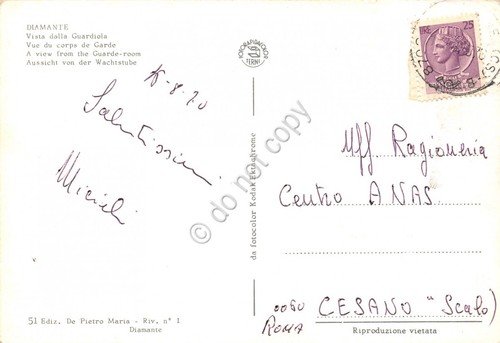 DIAMANTE
Vista dalla Guardiola
Vue du corps de Garde
A view from the Guarde-room
Aussicht von der Wachtstube
FOTORAPIDACOLOR
TERNI
25
-8-70
Salutissimi
do not copy
da fotocolor Kodak Ektachrome
Uff Ragioneria
Centro ANAS
0060 CESANO "Scalo)
ROMA
51 Ediz. De Pietro Maria - Riv. n° 1
Diamante
Riproduzione vietata